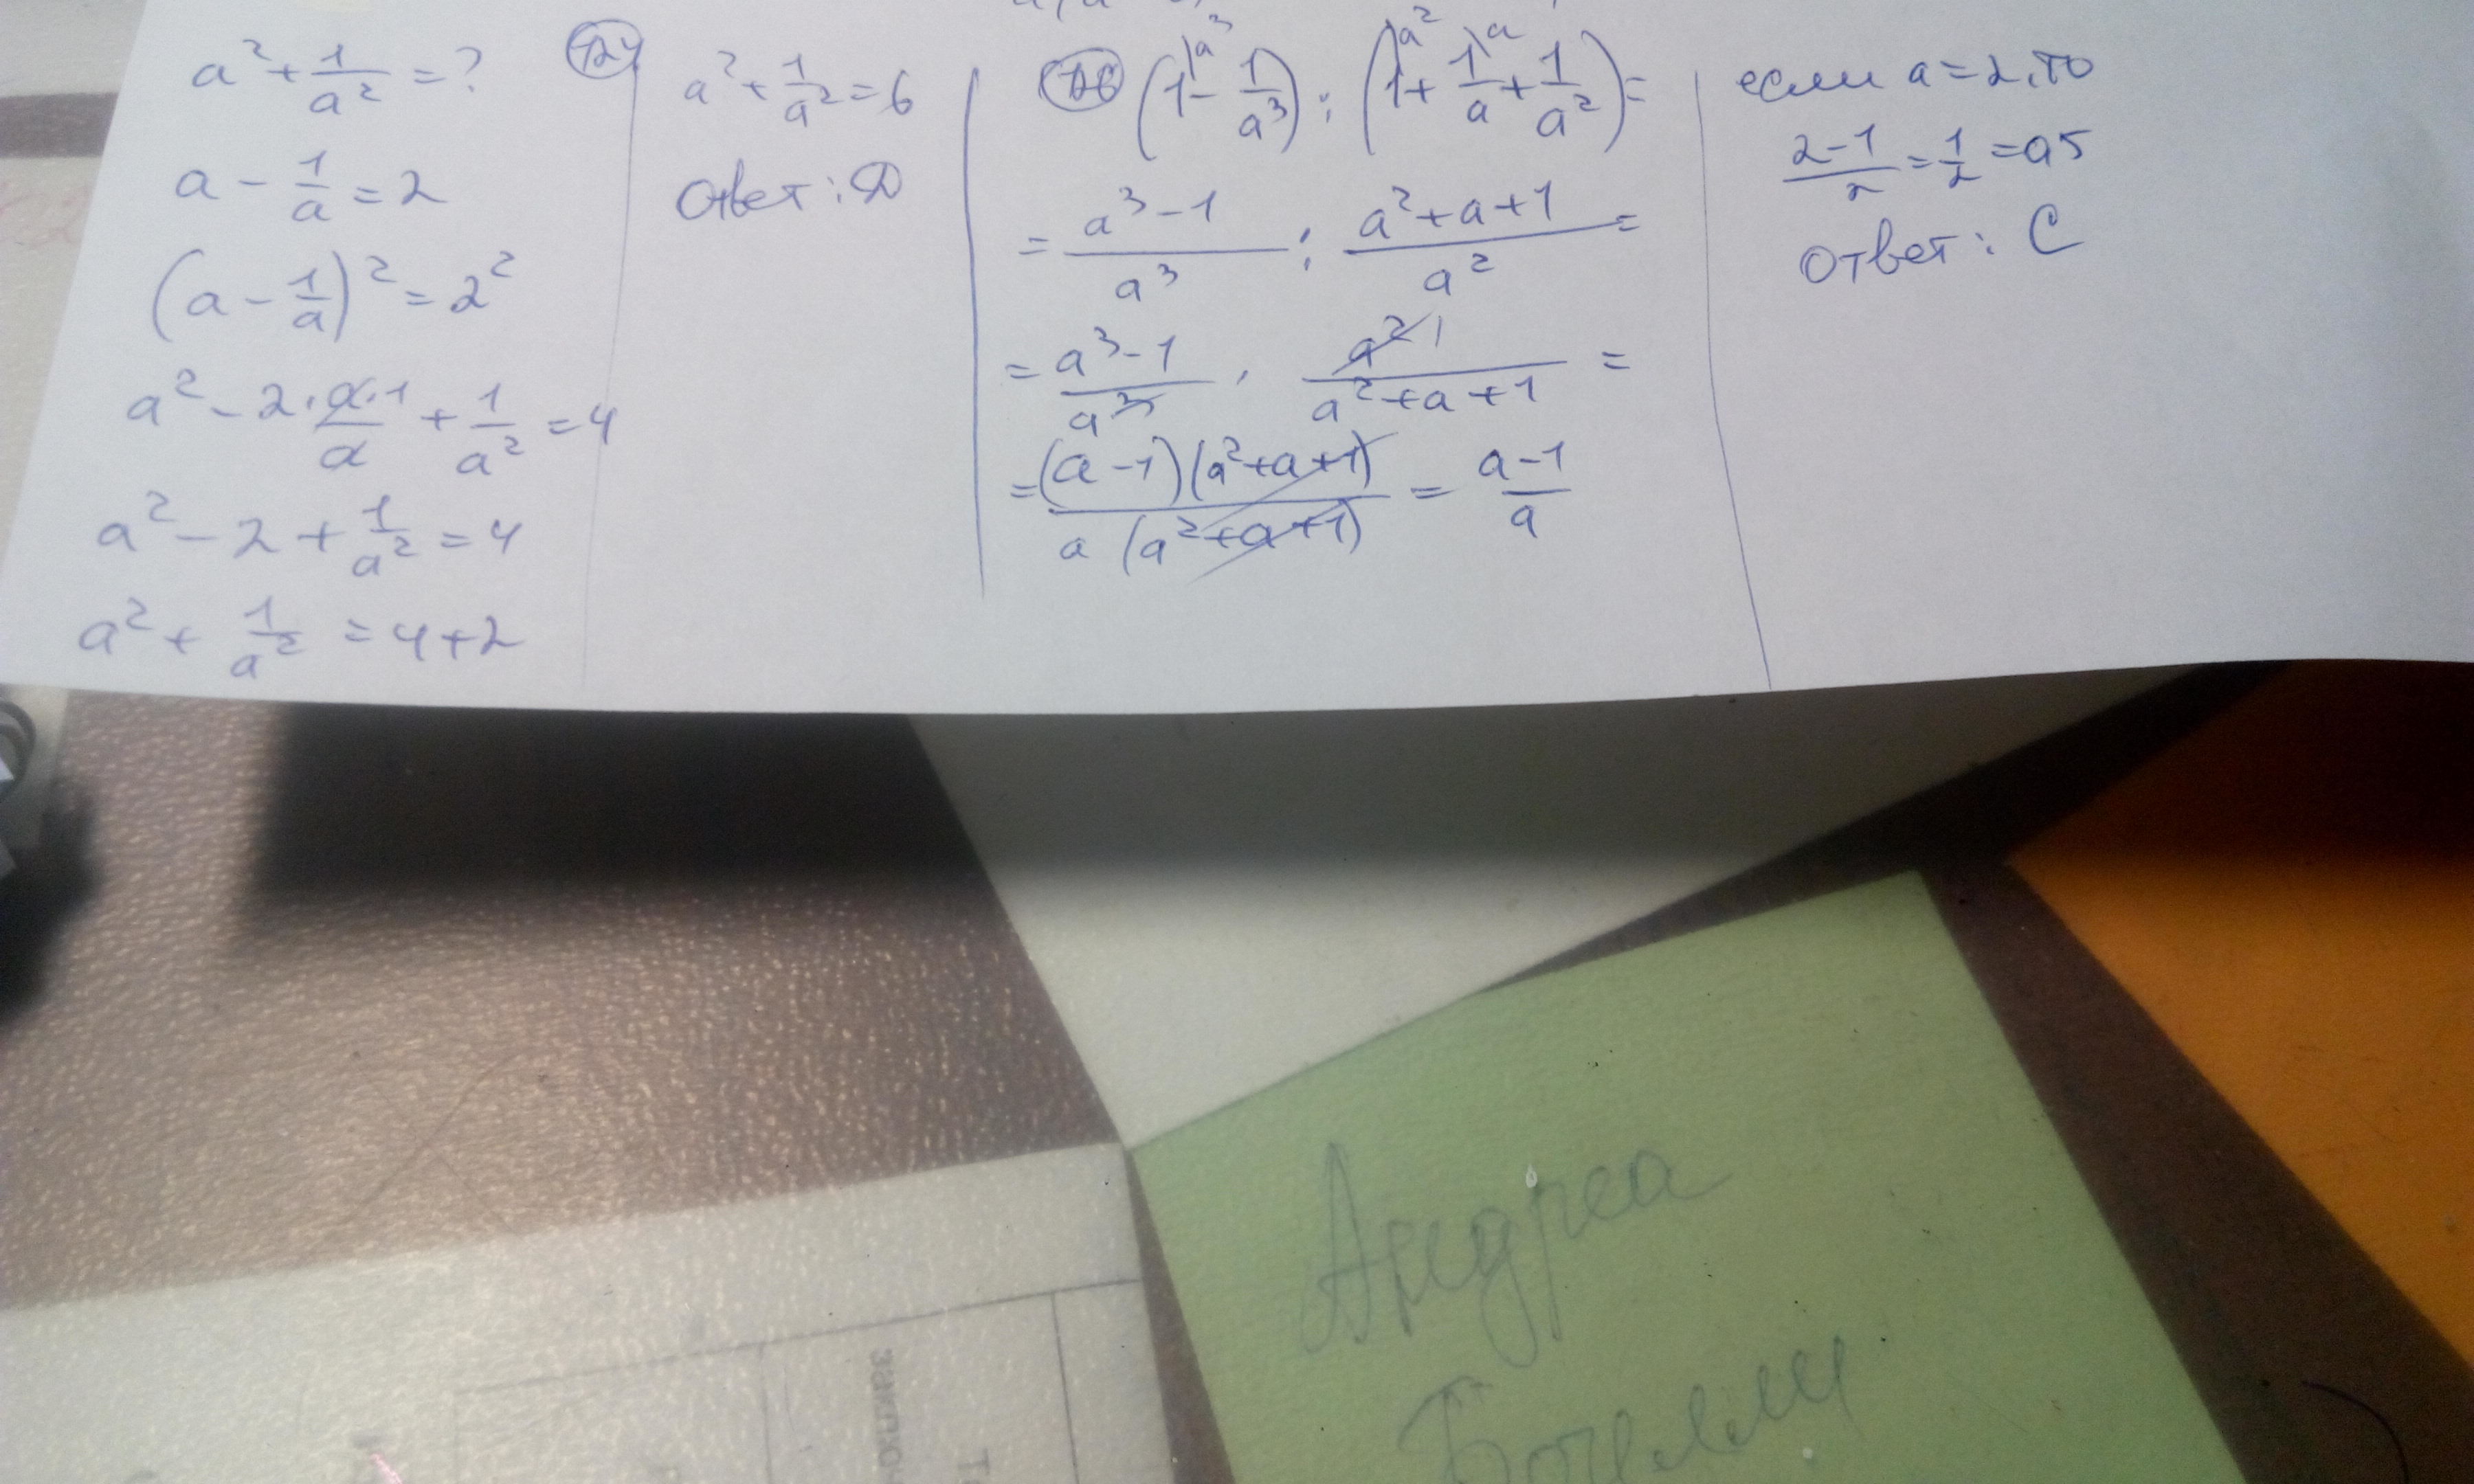 a² + 1/a² = ?
a - 1/a = 2
(a - 1/a)² = 2²
a² - 2·a·1/a + 1/a² = 4
a² - 2 + 1/a² = 4
a² + 1/a² = 4+2
124
a² + 1/a² = 6
Ответ: D
126 (1 - 1/a³) : (1 + 1/a + 1/a²) =
= (a³-1)/a³ : (a²+a+1)/a² =
= (a³-1)/a³ · a²/(a²+a+1) =
= (a-1)(a²+a+1)/a(a²+a+1) = (a-1)/a
если a=2, то
(2-1)/2 = 1/2 = 0,5
Ответ: C
Андреа